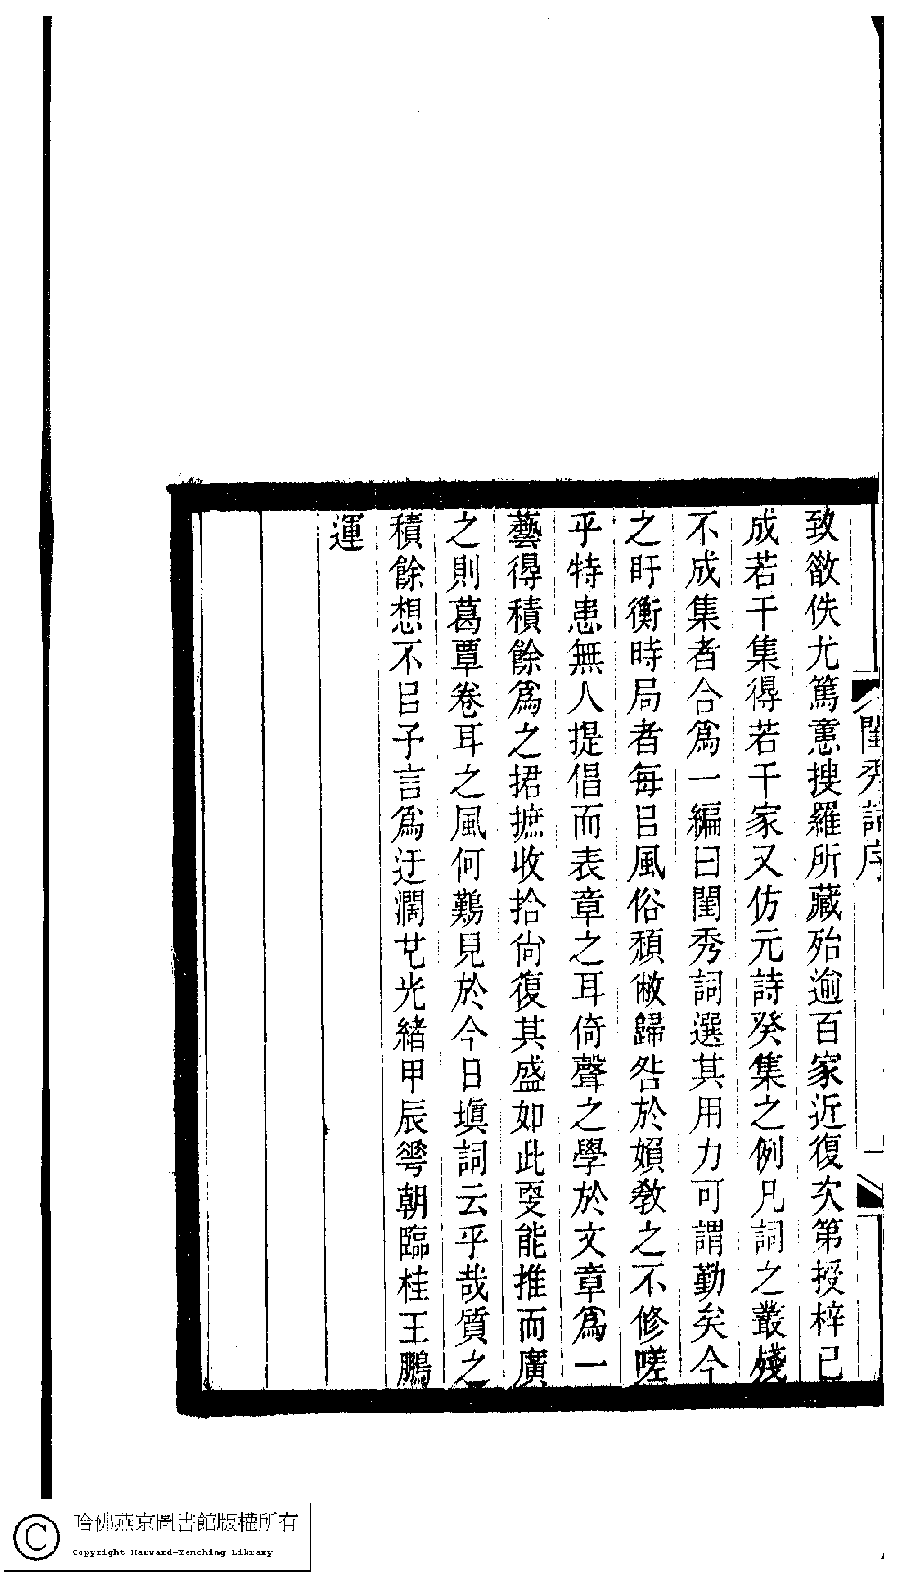 閨秀詞序
一
致欲佚尤篤意搜羅所藏殆逾百家近復次第授梓已
成若干集得若干家又仿元詩癸集之例凡詞之叢殘
不成集者合爲一編曰閨秀詞選其用力可謂勤矣今
之盱衡時局者每㠯風俗頹敝歸咎於嬪敎之不修嗟
乎特患無人提倡而表章之耳倚聲之學於文章爲一
藝得積餘爲之捃摭收拾尙復其盛如此叓能推而廣
之則葛覃卷耳之風何鷄見於今日塡詞云乎哉質之
積餘想不㠯予言爲迂濶也光緒甲辰蕐朝臨桂王鵬
運
哈佛燕京圖書館版權所有
Copyright Harvard-Yenching Library